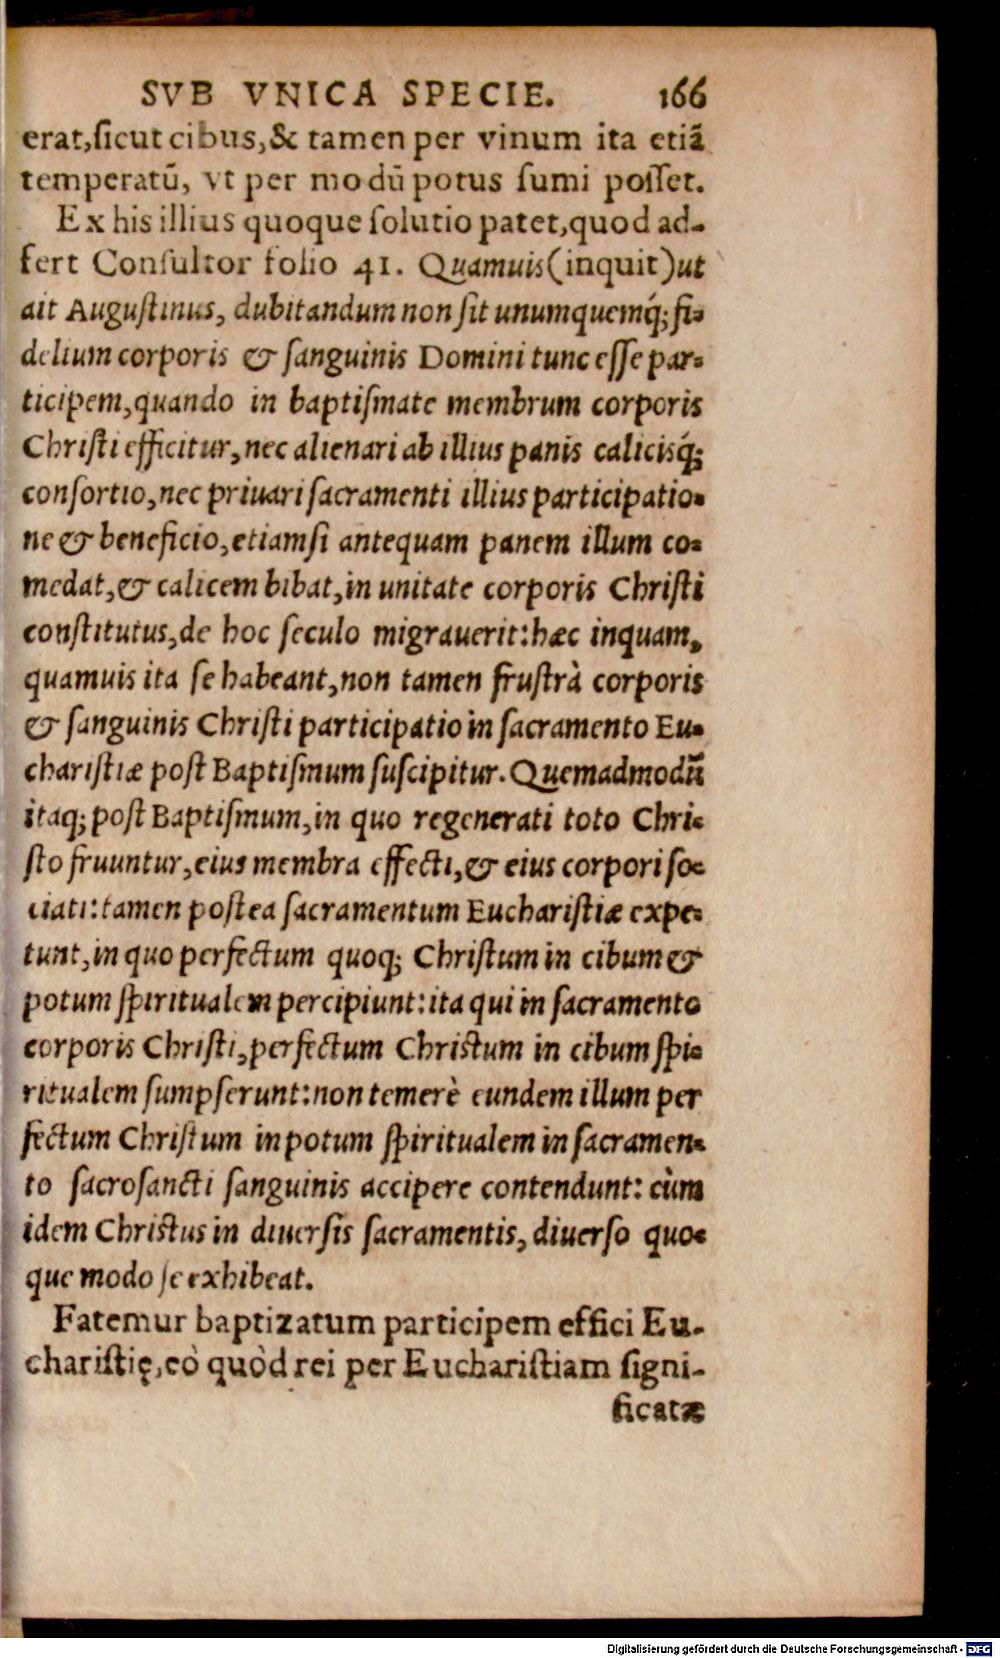 SVB VNICA SPECIE. 166
erat,ſicut cibus,& tamen per vinum ita etiā
temperatū, vt per modū potus ſumi poſſet.
Ex his illius quoque ſolutio patet,quod ad-
fert Conſultor folio 41. Quamuis(inquit)ut
ait Auguſtinus, dubitandum non ſit unumquemq́; fi-
delium corporis & ſanguinis Domini tunc eſſe par-
ticipem,quando in baptiſmate membrum corporis
Chriſti efficitur,nec alienari ab illius panis calicisq́;
conſortio,nec priuari ſacramenti illius participatio-
ne & beneficio,etiamſi antequam panem illum co-
medat,& calicem bibat,in unitate corporis Chriſti
conſtitutus,de hoc ſeculo migrauerit:hæc inquam,
quamuis ita ſe habeant,non tamen fruſtrà corporis
& ſanguinis Chriſti participatio in ſacramento Eu-
chariſtiæ poſt Baptiſmum ſuſcipitur. Quemadmodū
itaq; poſt Baptiſmum,in quo regenerati toto Chri-
ſto fruuntur,eius membra effecti,& eius corpori ſo-
ciati:tamen poſtea ſacramentum Euchariſtiæ expe-
tunt,in quo perfectum quoq; Chriſtum in cibum &
potum ſpiritualem percipiunt:ita qui in ſacramento
corporis Chriſti,perfectum Chriſtum in cibum ſpi-
ritualem ſumpſerunt:non temerè eundem illum per
fectum Chriſtum in potum ſpiritualem in ſacramen-
to ſacroſancti ſanguinis accipere contendunt: cùm
idem Chriſtus in diuerſis ſacramentis, diuerſo quo-
que modo ſe exhibeat.
Fatemur baptizatum participem effici Eu-
chariſtię,eò quòd rei per Euchariſtiam ſigni-
ficatæ
Digitalisierung gefördert durch die Deutsche Forschungsgemeinschaft - DFG